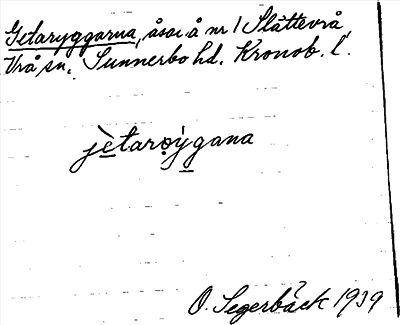 Getaryggarna, åsar å nr 1 Slättevrå,
Vrå sn, Sunnerbo hd. Kronob. l.
jètarǫýgana
O. Segerbäck 1939